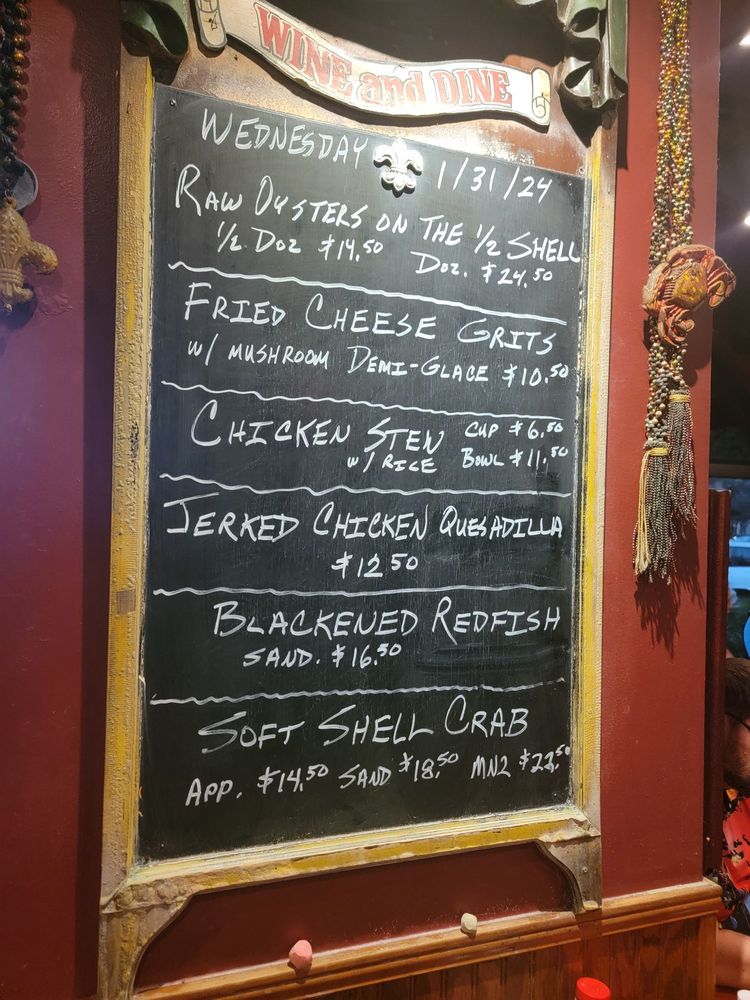 WINE and DINE
WEDNESDAY 1/31/24
RAW OYSTERS ON THE 1/2 SHELL
1/2 DOZ $14.50 DOZ. $24.50
FRIED CHEESE GRITS
W/ MUSHROOM DEMI-GLACE $10.50
CHICKEN STEW CUP $6.50
W/ RICE BOWL $11.50
JERKED CHICKEN QUESADILLA
$12.50
BLACKENED REDFISH
SAND. $16.50
SOFT SHELL CRAB
APP. $14.50 SAND $18.50 MN2 $22.50